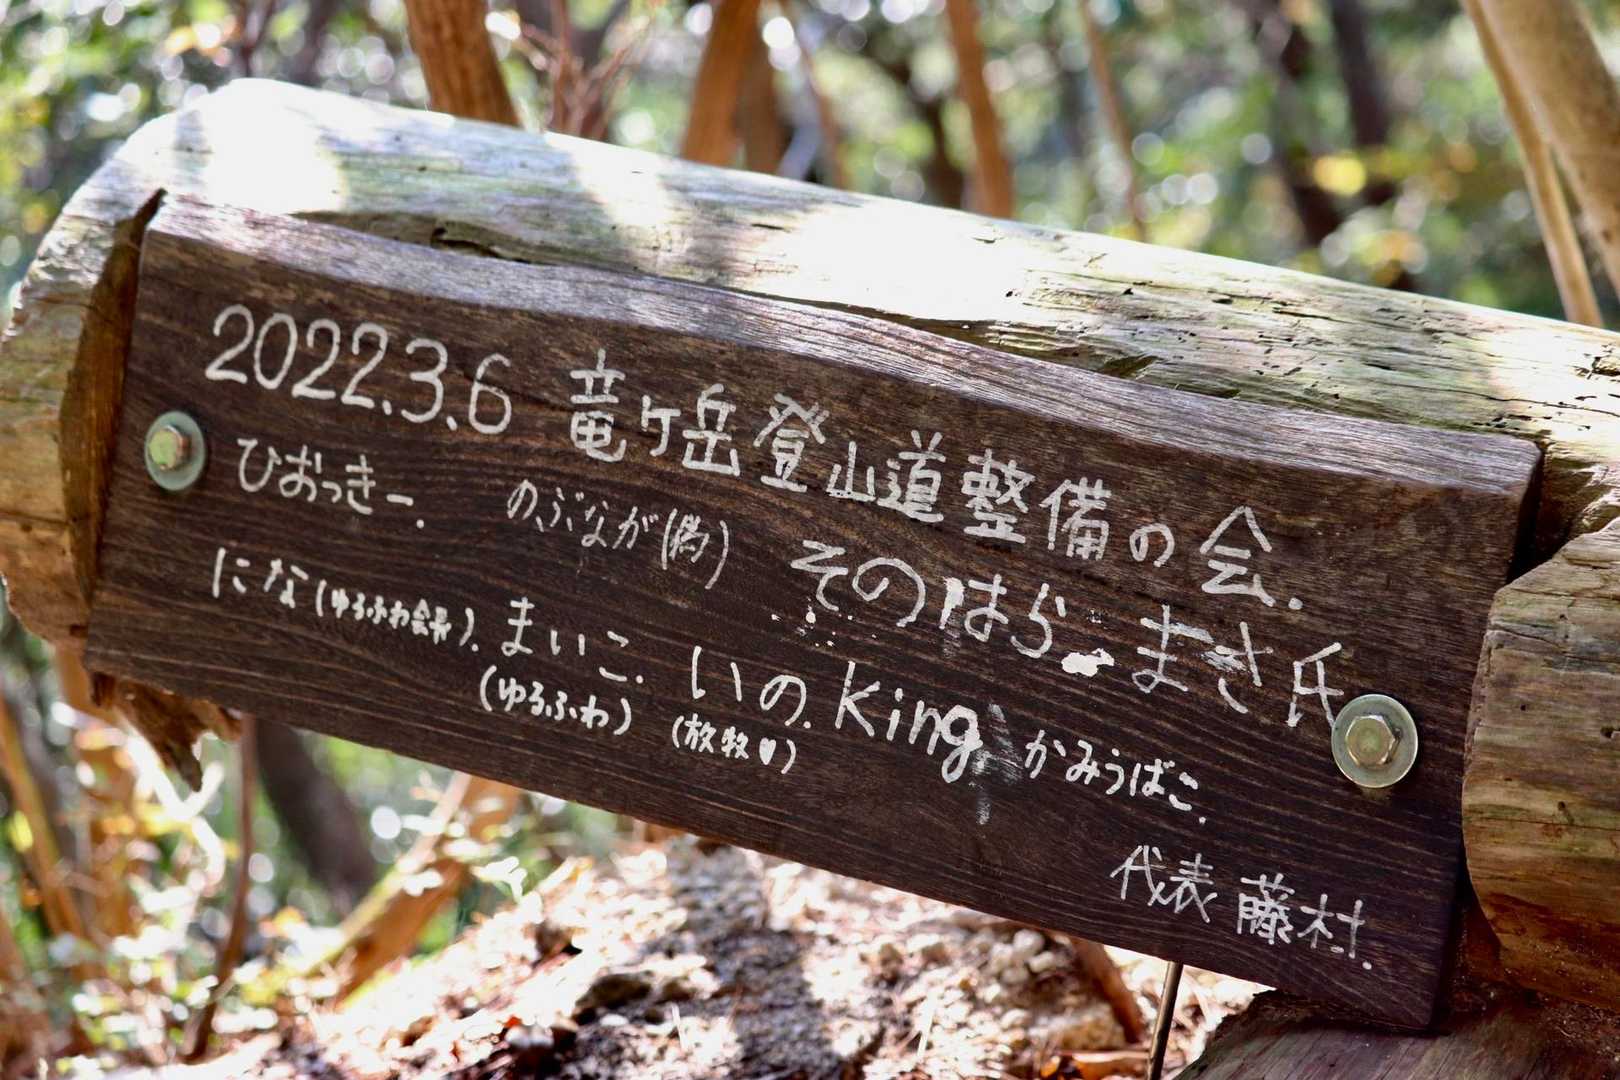 2022.3.6 竜ヶ岳登山道整備の会.
ひおっきー. のぶなが(偽) そのはら まさ氏
にな(ゆるふわ会長). まいこ. いの. King かみうばこ.
(ゆるふわ) (放牧♥)
代表 藤村.